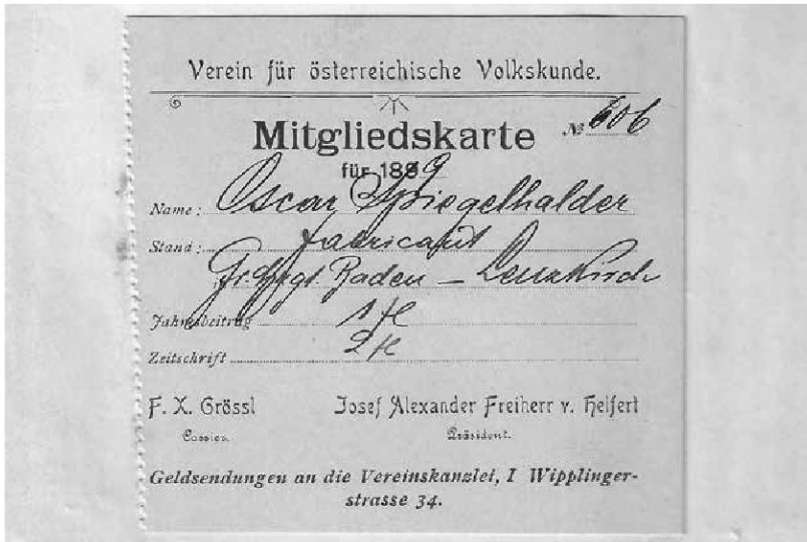 Verein für österreichische Volkskunde.
Mitgliedskarte № 606
für 1899
Name: Oscar Spiegelhalder
Stand: Fabricant
Gr. Hrzgt. Baden – Lenzkirch
Jahresbeitrag 1 fl
Zeitschrift 2 fl
F. X. Grössl Josef Alexander Freiherr v. Helfert
Cassier. Präsident.
Geldsendungen an die Vereinskanzlei, I Wipplinger-
strasse 34.